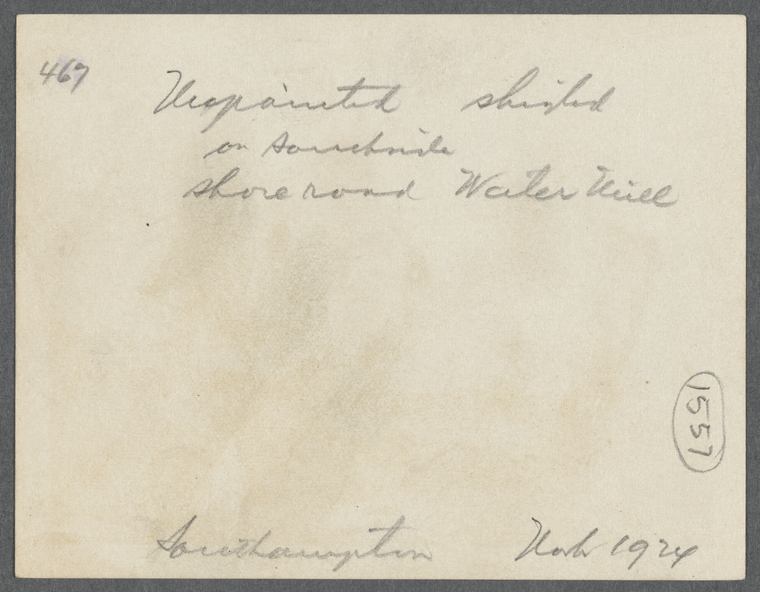 467
Unpainted shingled
on southside
shore road Water Mill
1557
Southampton Nov 1924